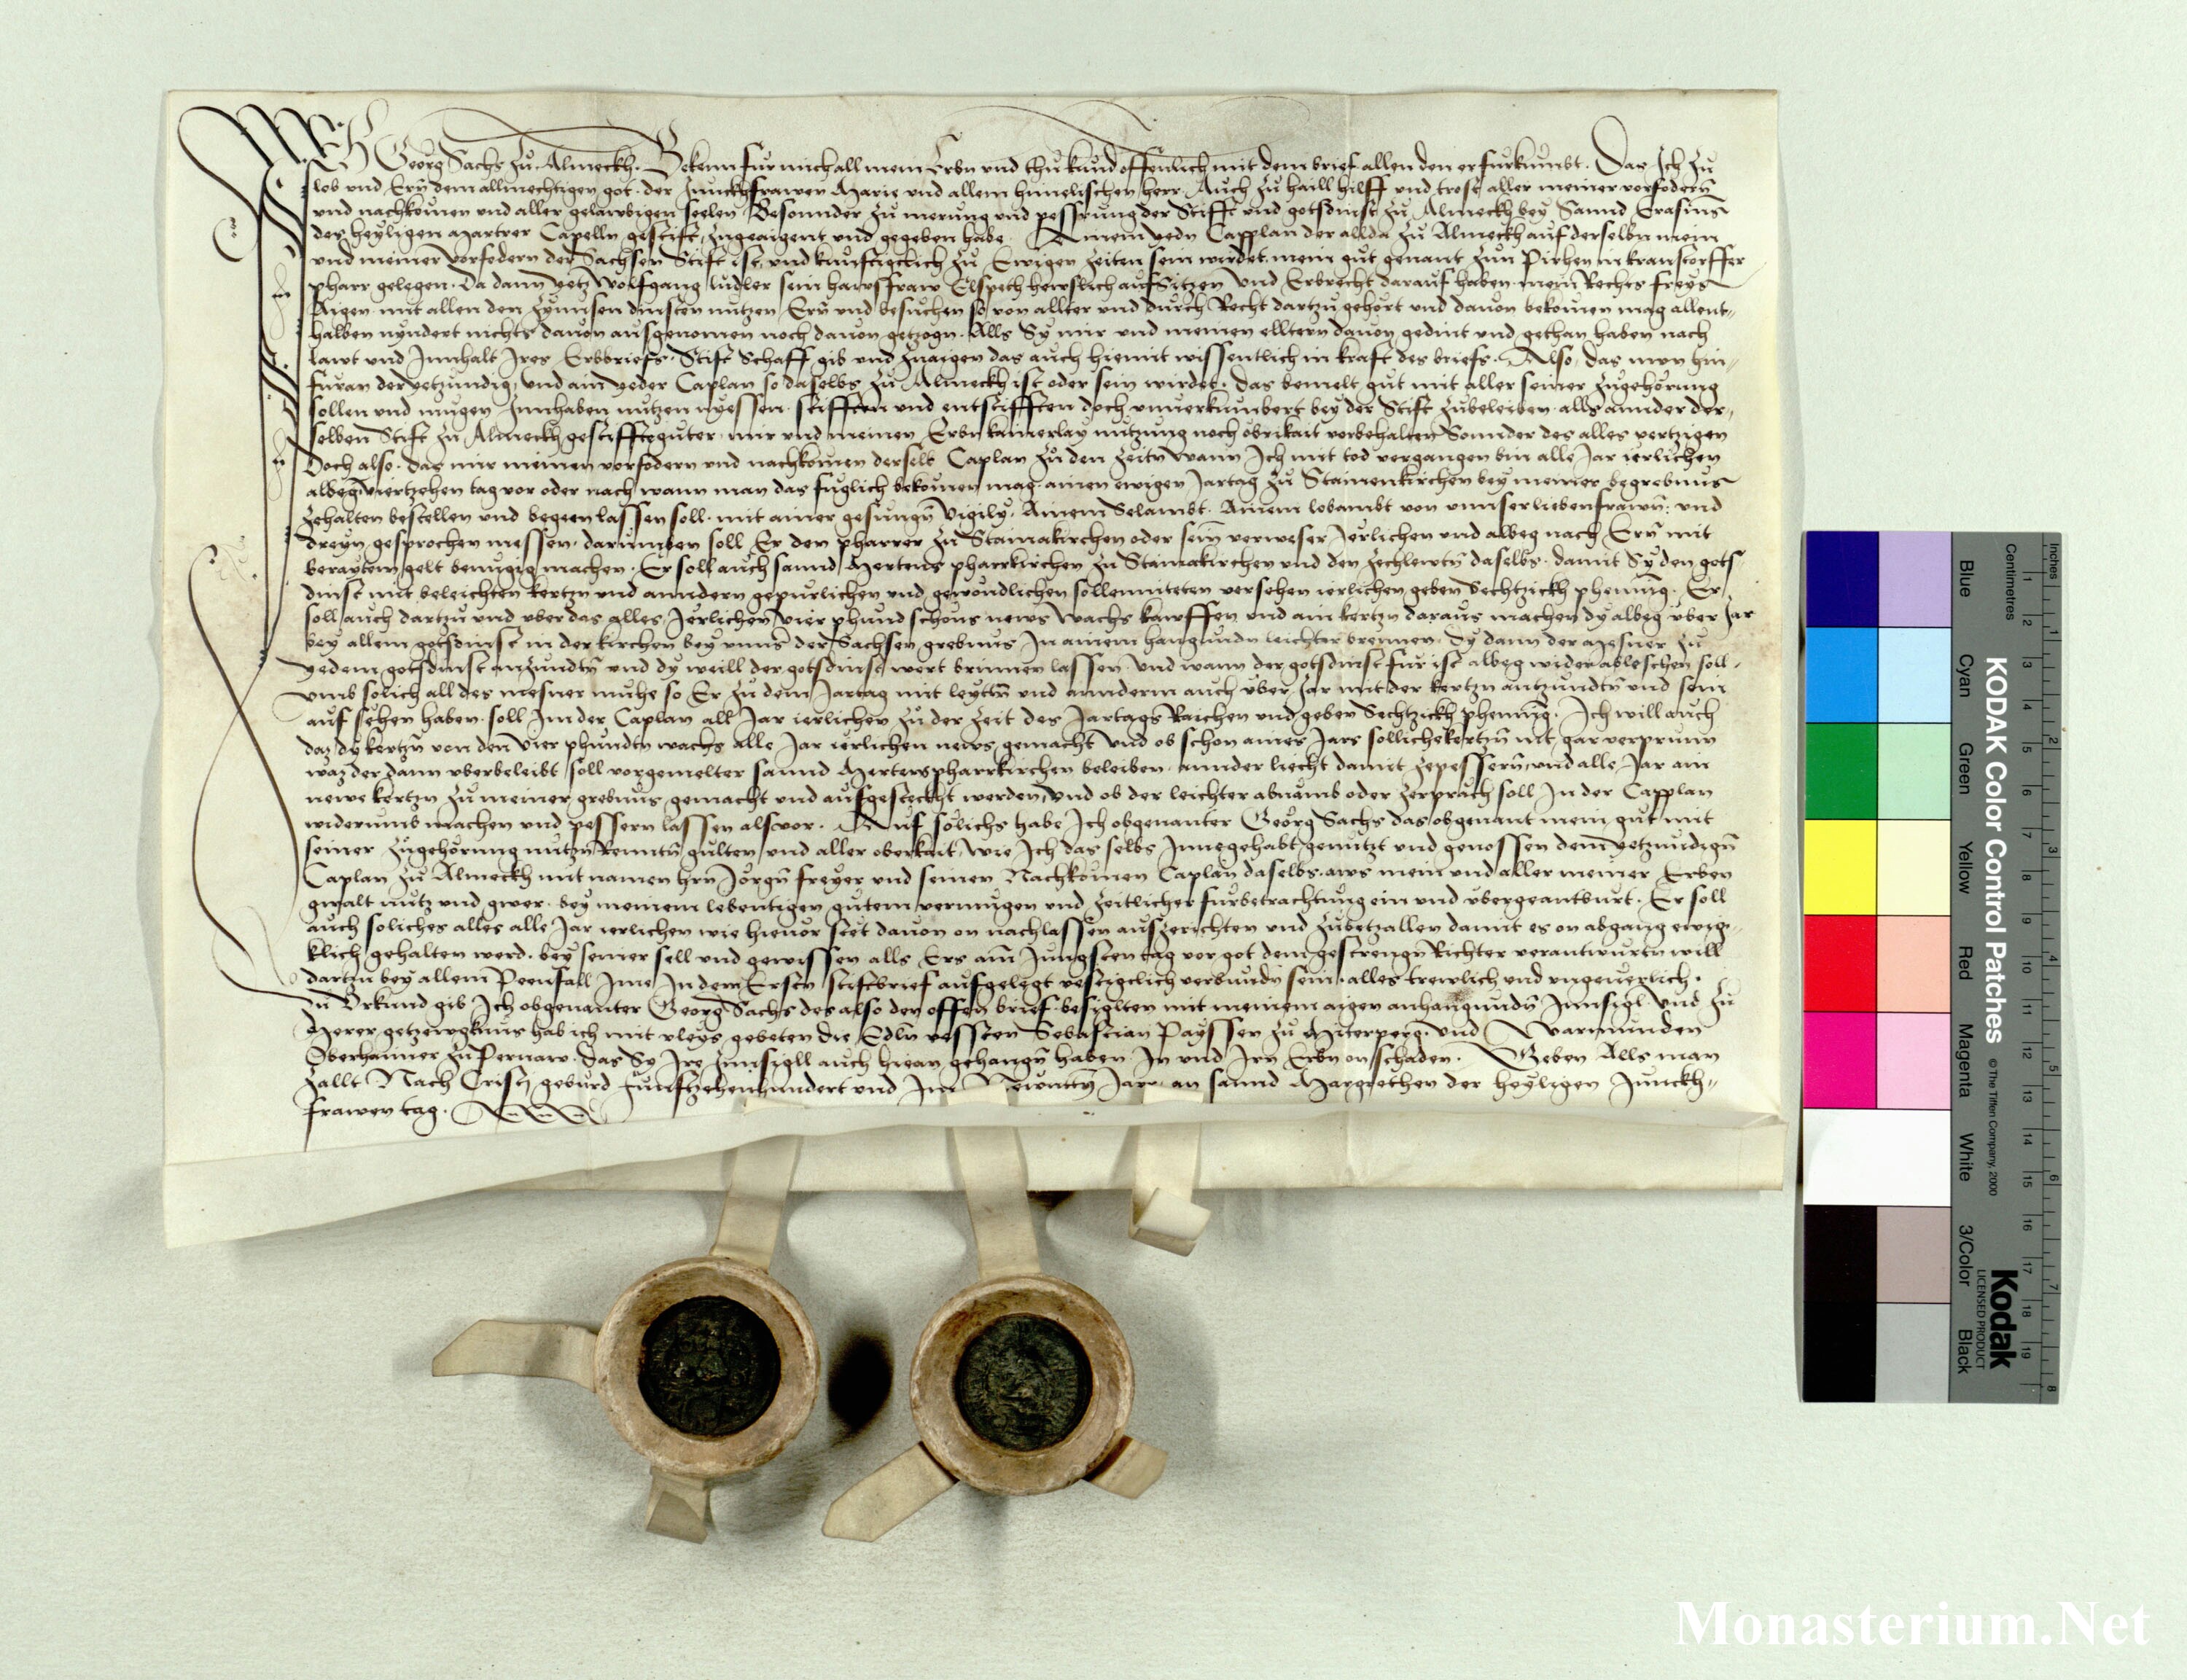 Ich Georg Sachs zu Almeckh. Bekenn fur mich all mein Erbn vnd thu kund offenlich mit dem brief allen den er furkumbt. Daz Ich zu
lob vnd Ern dem allmechtigen got. der Junckhfrawen Marie vnd allem himelischen herr. Auch zu haill hilff vnd trost aller meiner vorfodern
vnd nachkomen vnd aller gelawbigen seelen Besonnder zu merung vnd pessrung der Stifft vnd gotsdinst zu Almeckh bey Sannd Erasims
des heyligen Martrer Capelln gestift, zugeaigent vnd gegeben habe. Ainem yedn Capplan der allda zu Almeckh auf derselbn mein
vnd meiner Vorfodern der Sachsen Stift ist, vnd kunfftigclich zu Ewigen zeiten sein wirdet. mein gut genant zun Pirhen in kranstorffer
pharr gelegen. Da dann yetz Wolfgang ludler sein hawsfraw Elspeth hewslich auf Sitzen vnd Erbrecht darauf haben. mein Rechts freys
Aigen. mit allen den zynnsen dinsten nutzen, Ern vnd besuchen so von allter vnd durch Recht dartzu gehort vnd dauon bekomen mag allent-
halben nyndert nichts dauon ausgenomen noch dauon getzogn. Alls Sy mir vnd meinen elltern dauon gedint vnd gethan haben nach
lawt vnd Innhalt Jres Erbbriefs. Stift Schaff gib vnd zuaigen das auch hiemit wissentlich in kraft des briefs. Also, das nun hin-
furan der yetzundig, vnd ain yeder Caplan so daselbs zu Almeckh ist oder sein wirdet. das bemelt gut mit aller seiner zugehorung
sollen vnd mugen Innhaben nutzen nyessen. stifften vnd entstifften doch vnuerkumbert bey der Stift zubeleiben. alls annder der-
selben Stift zu Almeckh gestifftguter. mir vnd meinen Erbn kainerlay nutzung noch obrikait vorbehalten Sonnder des alles vertzigen
Doch also. das mir meinen vorfodern vnd nachkomen derselb Caplan zu den zeitn wann Ich mit tod vergangen bin alle Jar ierlichen
albeg viertzehen tag vor oder nach wann man das fuglich bekomen mag. ainen ewigen Jartag zu Stainenkirchen bey meiner begrebnus
zehalten bestellen vnd begeen lassen soll. mit ainer gesungn Vigily. Ainem Selambt. Ainem lobambt von vnnser lieben frawn. vnd
dreyn gesprochen messen. darumben soll Er den pharrer zu Stainakirchen oder sein verweser Jerlichen vnd albeg nach Ern mit
beraytem gelt benugig machen. Er soll auch sannd Mertens pharrkirchen zu Stainakirchen vnd den zechlewtn daselbs. damit Sy den gots-
dinst mit beleichten kertzn vnd anndern gepurlichen vnd gewondlichen sollenniteten versehen ierlichen geben Sechtzickh phening. Er
soll auch dartzu vnd vber das alles Jerlichen vier phund schons news Wachs kawffen vnd ain kertzn daraus machen dy albeg vber Jar
bey allem gotsdinst in der kirchen bey vnns der Sachsen grebnus In ainem hangundn leichter brennen. Dy dann der Mesner zu
yedem gotsdinst anzundtn vnd dy weill der gotsdinst wert brinnen lassen. vnd wann der gotsdinst fur ist albeg wider ableschen soll.
vmb solich all des mesner muhe so Er zu dem Jartag mit leyttn vnd annderm auch vber Jar mit der kertzn antzundtn vnd sein
auf sehen haben. soll Im der Caplan all Jar ierlichen zu der zeit des Jartags Raichen vnd geben Sechtzickh phening. Ich will auch
daz dy kertzn von den vier phundtn wachs alle Jar ierlichen news gemacht vnd ob schon aines Jars sollichekertzn nit gar verprunn
waz der dann vberbeleibt soll vorgemelter sannd Mertenspharrkirchen beleiben. annder liecht damit zepessern, vnd alle Jar ain
newe kertzn zu meiner grebnus gemacht vnd aufgesteckht werden, vnd ob der leichter abnamb oder zerprach soll In der Capplan
widerumb machen vnd pessern lassen alsvor. Auf solichs habe Ich obgenanter Georg Sachs das obgenant mein gut mit
seiner zugehorung nutzn Renntn gulten vnd aller oberkait, wie Ich das selbs Innegehabt genutzt vnd genossen dem yetzundign
Caplan zu Almeckh mit namen hrn Jorgn freyer vnd seinen Nachkomen Caplan daselbs. aws mein vnd aller meiner Erben
gwalt nutz vnd gwer. bey meinem lebentigen gutem vermugen vnd zeitlicher furbetrachtung ein vnd vbergeantburt. Er soll
auch soliches alles alle Jar ierlichen wie hieuor stet dauon on nachlassen auszerichten vnd zubetzallen damit es on abgang ewig-
klich gehalten werd. bey seiner sell vnd gewissen alls Ers am Jungsten tag vor got dem gestrengn Richter verantwurtn will
dartzu bey allem Peenfall Ime In dem Ersten stiftbrief aufgelegt vestigclich verbundn sein. alles trewlich vnd vngeuerlich.
Zu Vrkund gib Ich obgenanter Georg Sachs des also den offen brief besiglten mit meinem aigen anhanngundn Innsigl. Vnd zu
Merer getzewgknus hab ich mit vleys gebeten die Edln vessten Sebastian Payssen zu Miterperg. vnd Warmunden
Oberhaimer zu Pernaw. das Sy Ire Innsigll auch hiean gehangn haben In vnd Irn Erbn on schaden. Geben Alls man
zallt Nach Cristi geburd Funfftzehenhundert vnd Im Newntn Jare an sannd Margrethen der heyligen Junckh-
frawen tag.
KODAK Color Control Patches © The Tiffen Company, 2000
Kodak
LICENSED PRODUCT
Blue Cyan Green Yellow Red Magenta White 3/Color Black
Centimetres 1 2 3 4 5 6 7 8 9 10 11 12 13 14 15 16 17 18 19
Inches 1 2 3 4 5 6 7 8
Monasterium.Net